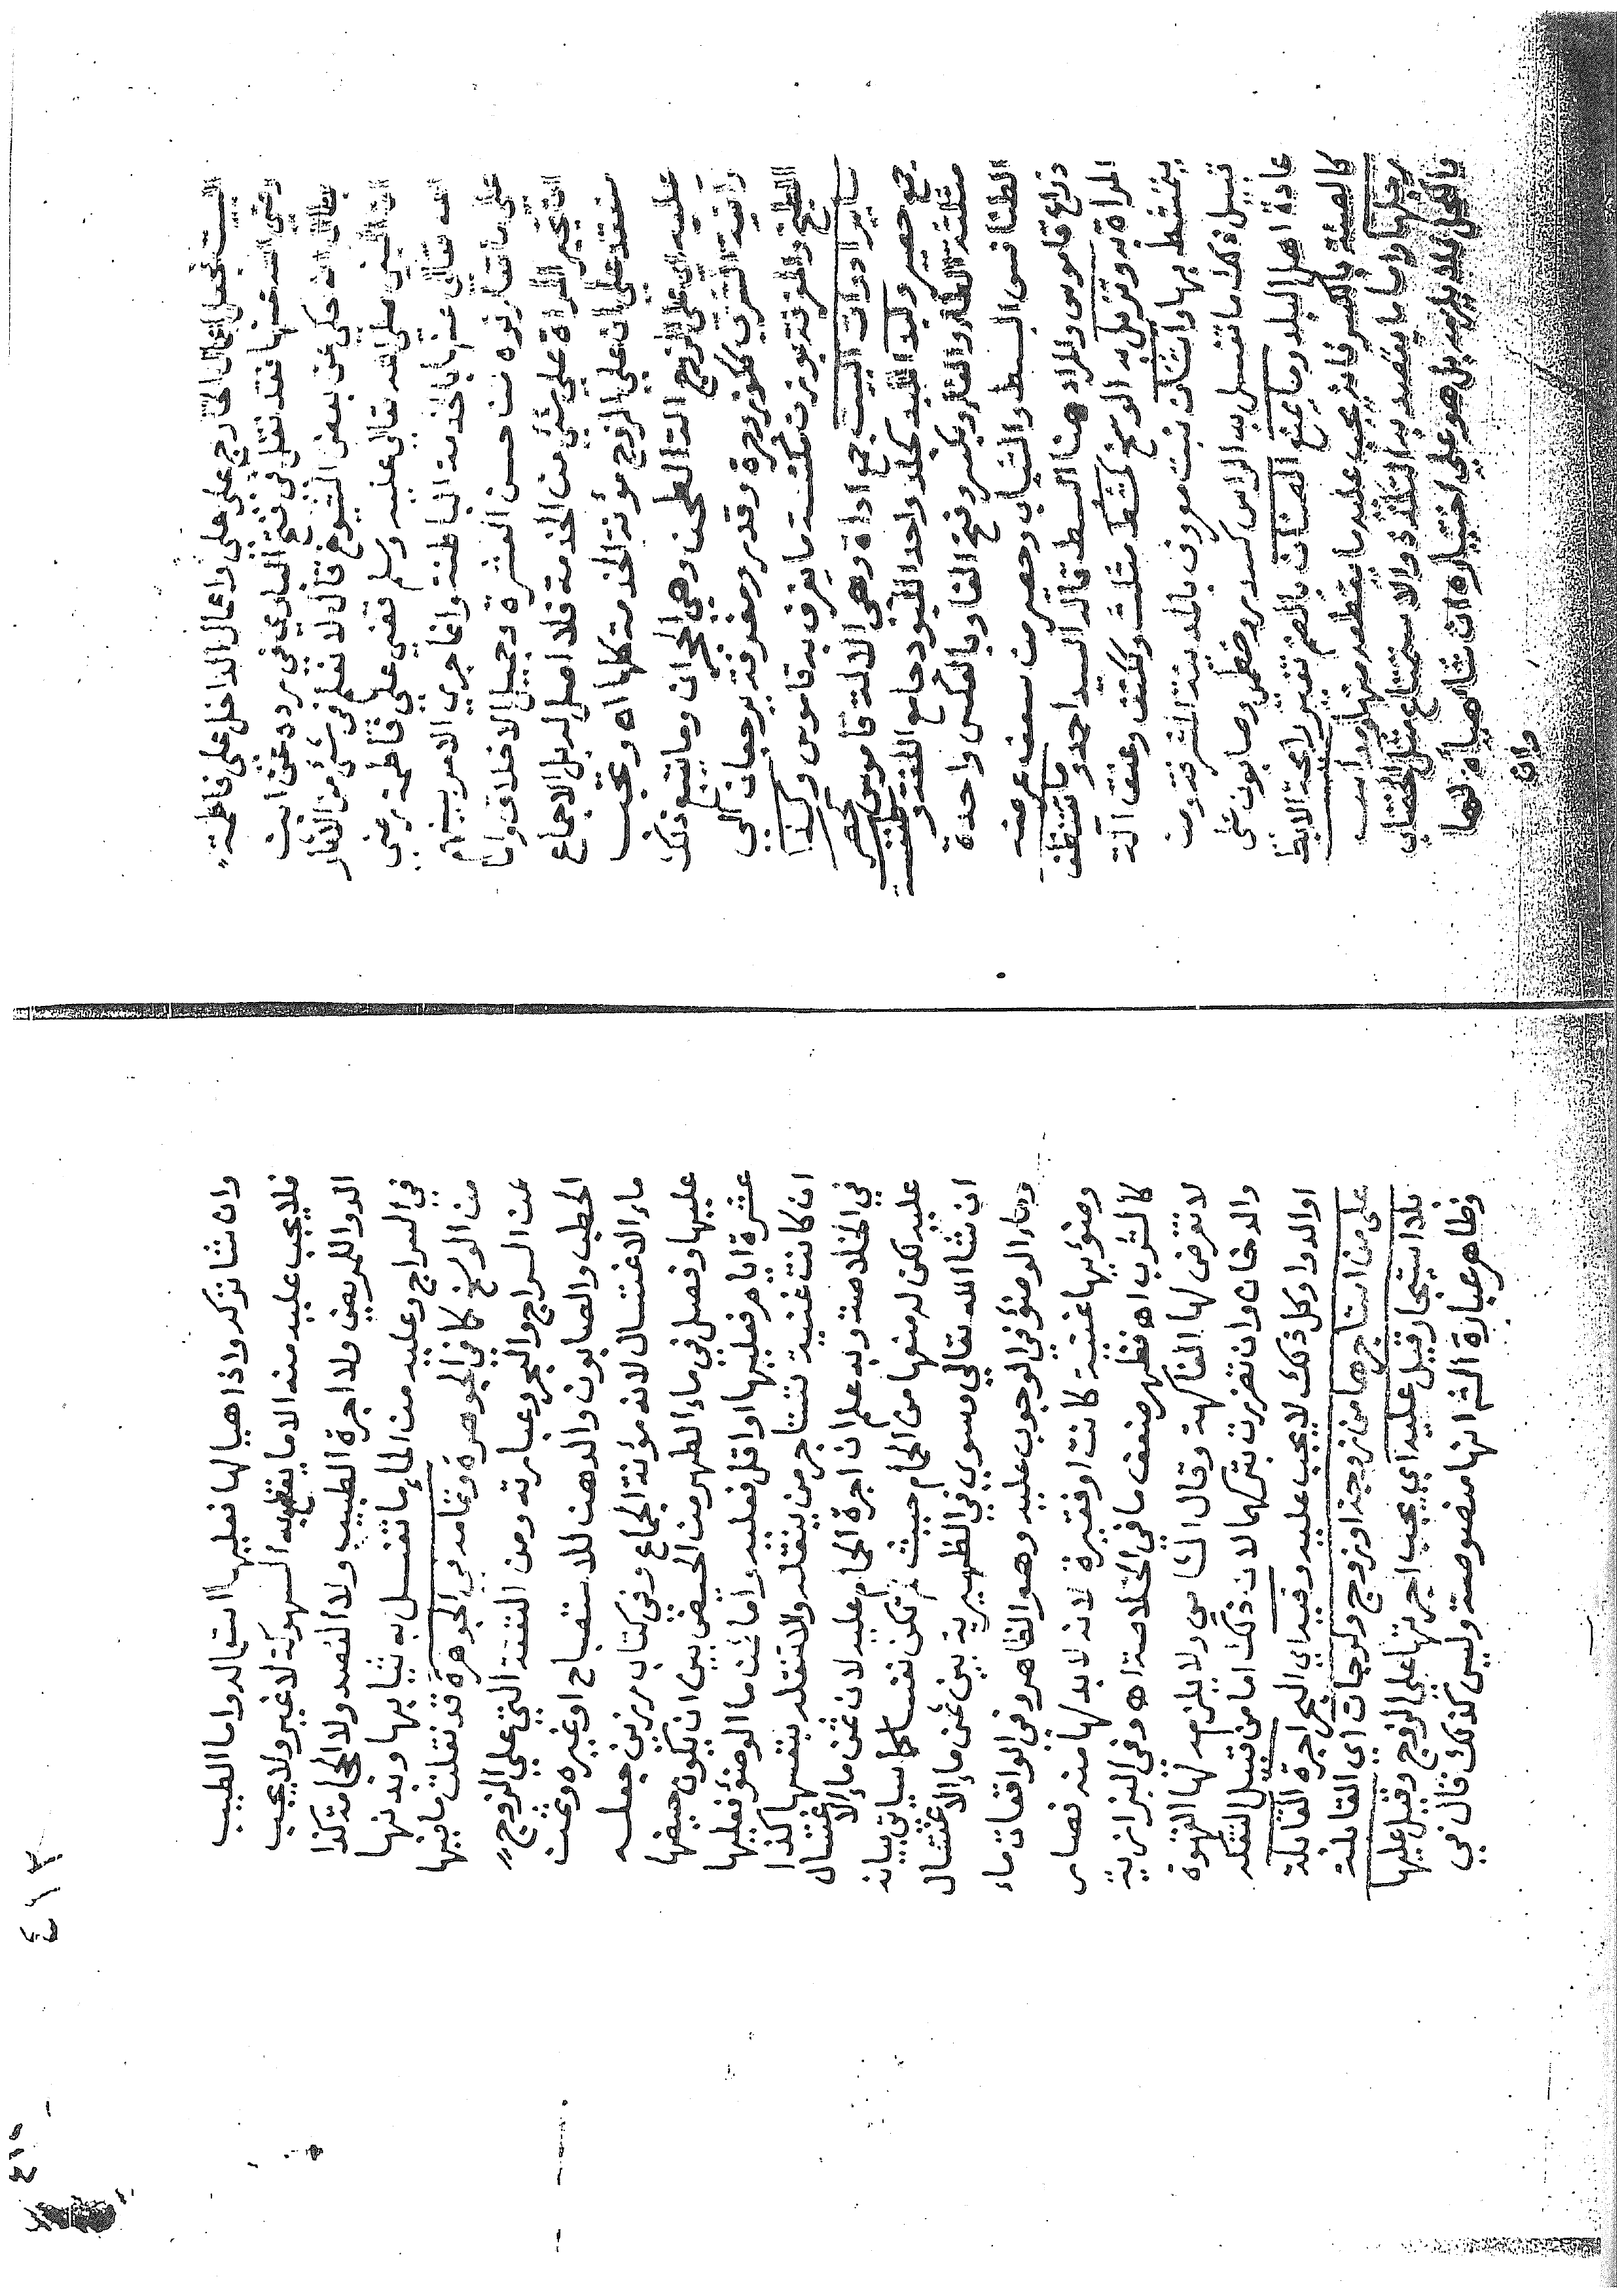 البيت فجعل اعمال الخارج على علي واعمال الداخل على فاطمة
رضي الله عنها فقد نقل في فتح الباري في رد دعوى ابن
بطال انه حكى عن بعض الشيوخ قال لا نعلم في شئ من الاثار
ان النبي صلى الله تعالى عليه وسلم قضى على فاطمة رضي
الله تعالى عنها بالخدمة الباطنة وانما جرى الامر بينهم
على ما تعارفوه من حسن العشرة وجميل الاخلاق واما
ان تجبر المراة على شئ من الخدمة فلا اصل له بل الاجماع
منعقد على ان على الزوج مؤنة الخدمة كلها اه وتجب
عليه اي على الزوج الة الطحن وهي الحجران وما يتبع ذلك
وانية الشرب ككوز وجرة وقدر ومغرفة يرجعان الى
الطبخ والمغرفة بوزن مكنسة ما يغرف به قاموس وكذا
ساير ادوات البيت جمع اداة وهي الالة قاموس كحصر
جمع حصير ولبد اللبد كجلد واحد اللبود جامع اللغة وطنفسة
مثلثة الطا والفا وبكسر وفتح الفا وبالعكس واحدة
الطنافس البسط والثياب وحصير من سعف عرضه
ذراع قاموس والمراد هنا البسط قاله السيد احمد وما تتنظف
المراة به وتزيل به الوسخ كمشط مثلث وككتف وعنق الة
يتمشط بها واشنان نبت معروف بالمدينة المشرفة ومن
قبيل ذلك ما تغسل به الراس كسدر وخطمي وصابون على
عادة اهل البلد وما يمنع الصنان بالضم تغير رائحة الابط
كالصنة بالكسر فانه يجب عليه ما يقطعه منها ومداس
رجلها واما ما يقصد به التلذذ والاستمتاع مثل الخضاب
والكحل فلا يلزمه بل هو على اختياره ان شا هياه لها
وان
وان شا تركه واذا هيا لها فعليها استعماله واما الطيب
فلا يجب عليه منه الا ما يقطع به السهوكة لا غير ولا يجب
الدوا للمريض ولا اجرة الطبيب ولا الفصد ولا الحجامة كذا
في السراج وعليه من الماء ما تغسل به ثيابها وبدنها
من الوسخ كما في الجوهرة وتمامه في الجوهرة قد نقلت ما فيها
عن السراج والبحر وعبارته ومن النفقة التي على الزوج
الحطب والصابون والدهن للاستصباح او غيره وثمن
ماء الاغتسال لانه مؤنة الجماع وفي كتاب رزين جعله
عليها وفصل في ماء الطهر من الحيض بين ان يكون حيضها
عشرة ايام فعليها او اقل فعليه واما ثمن ما الوضؤ فعليها
ان كانت غنية تستاجر من ينقله ولا تنقله بنفسها كذا
في الخلاصة وبه علم ان اجرة الحمام عليه لان ثمن ماء الاغتسال
عليه لكن له منعها من الحمام حيث لم تكن نفسا كما سياتي بيانه
ان شا الله تعالى وسوى في الظهيرية بين ثمن ماء الاغتسال
وماء الوضؤ في الوجوب عليه وهو الظاهر وفي الواقعات ماء
وضؤيها غنية كانت او فقيرة لانه لا بد لها منه فصار
كالشرب اه فظهر ضعف ما في الخلاصة اه وفي البزازية
لا تفرض لها الفاكهة وقال الشامي ولا يلزمه لها القهوة
والدخان وان تضررت بتركهما لان ذلك اما من قبيل التفكه
او الدوا وكل ذلك لا يجب عليه وفيه اي البحر اجرة القابلة
على من استاجرها من زوجة او زوج ولو جات اي القابلة
بلا استيجار قيل عليه اي يجب اجرتها على الزوج وقيل عليها
وظاهر عبارة الشم انها منصوصة وليس كذلك قال في
٤١٢
٤١٠